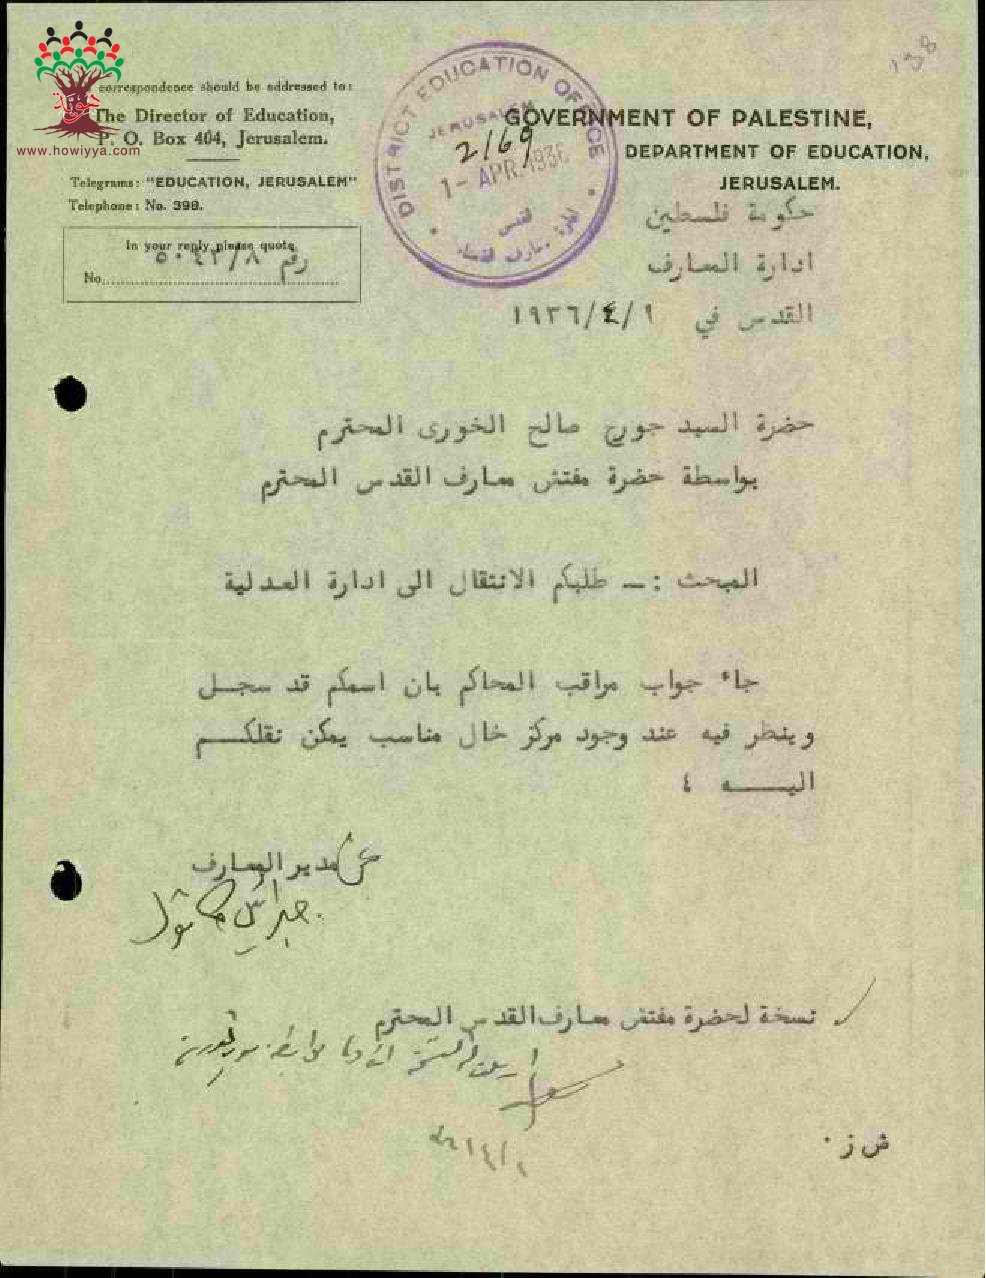 138
correspondence should be addressed to:
The Director of Education,
P. O. Box 404, Jerusalem.
www.howiyya.com
Telegrams: "EDUCATION, JERUSALEM"
Telephone: No. 398.
In your reply please quote
No. رقم ٥٠٤٢/٨
DISTRICT EDUCATION OFFICE
JERUSALEM
2/69
1 - APR. 1936
القدس
GOVERNMENT OF PALESTINE,
DEPARTMENT OF EDUCATION,
JERUSALEM.
حكومة فلسطين
ادارة المعارف
القدس في ١/٤/١٩٣٦
حضرة السيد جورج صالح الخورى المحترم
بواسطة حضرة مفتش معارف القدس المحترم
المبحث :ــ طلبكم الانتقال الى ادارة العدلية
جاء جواب مراقب المحاكم بان اسمكم قد سجل
وينظر فيه عند وجود مركز خال مناسب يمكن نقلكم
اليه ٤
عن مدير المعارف
جبرائيل كاتول
نسخة لحضرة مفتش معارف القدس المحترم
ش ز ٠